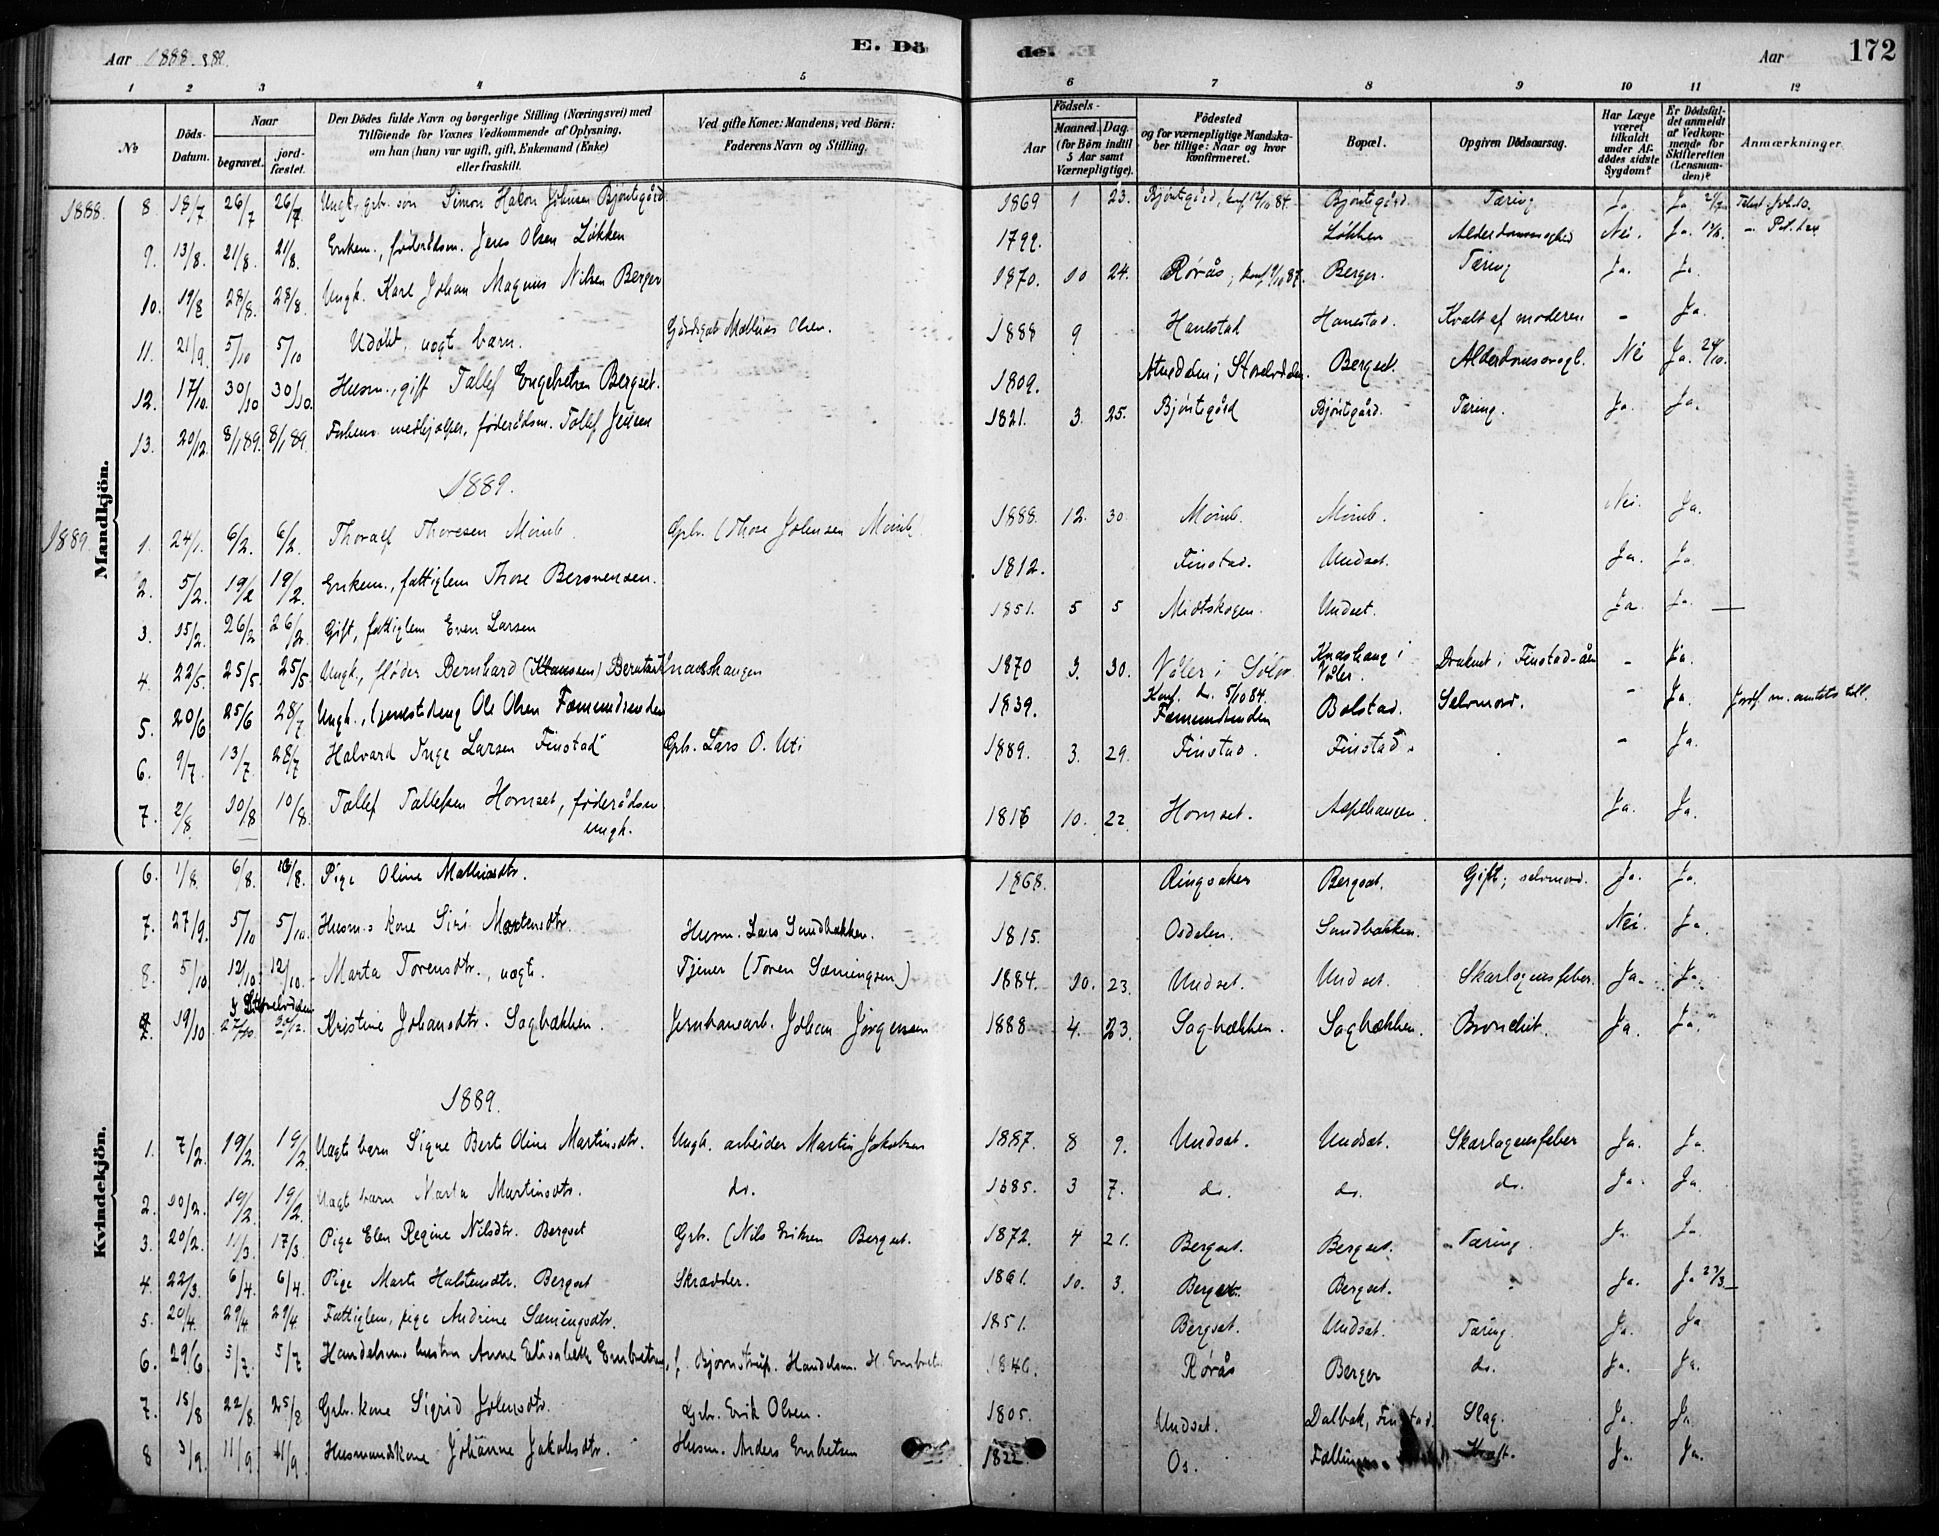 Aar 1888. 89. E. Dö de. Aar 172
1 2 3 4 5 6 7 8 9 10 11 12
No
Döds-Datum.
Naar
begravet.
jord-fæstet.
Den Dödes fulde Navn og borgerlige Stilling (Næringsvei) med Tilföiende for Voxnes Vedkommende af Oplysning, om han (hun) var ugift, gift, Enkemand (Enke) eller fraskilt.
Ved gifte Koner: Mandens, ved Börn: Faderens Navn og Stilling.
Födsels-
Aar
Maaned. Dag.
(for Börn indtil 5 Aar samt Værnepligtige).
Födested og for værnepligtige Mandskaber tillige: Naar og hvor konfirmeret.
Bopæl.
Opgiven Dödsaarsag.
Har Læge været tilkaldt under Afdödes sidste Sygdom?
Er Dödsfaldet anmeldt af Vedkommende for Skifteretten (Lensmanden)?
Anmærkninger.
Mandkjön.
1888. 8. 18/7 26/7 26/7 Ungk., grb. søn Simon Hakon Johnsen Bjøntegård 1869 1 23. Bjøntegård, konf 12/10 84. Bjøntegård Tæring Ja. Ja.
9. 13/8. 21/8. 21/8. Enkem., føderådsm. Jens Olsen Løkken 1799. Løkken Alderdomssvaghed Nei. Ja.
10. 19/8 28/8. 28/8. Ungk. Karl Johan Magnus Nilsen Berger 1870. 10 24. Rørås, Berger. Tæring Ja. Ja.
11. 21/9. 5/10 5/10 Udøbt, uægt barn. Mathias Olsen. 1888 9 Hanestad Hanestad. Kvalt af moderen - Ja.
12. 17/10. 30/10 30/10. Husm., gift Tollef Engebretsen Bergset. 1809. Atnedalen i Storelvdalen. Bergset. Alderdomssvagh. Nei Ja. 24/10.
13. 20/12. 8/1 89. 8/1 89. medhjælper, føderådsm. Tollef Jensen 1821. 3. 25. Bjøntegård Bjøntgård. Tæring. Ja. Ja.
1889.
1889. 1. 24/1. 6/2. 6/2. Thoralf Thoresen Moinb. Grb. (Thore Johnsen Moinb. 1888. 12. 30. Moinb. Moinb. Nei. Ja.
2. 5/2. 19/2 19/2. Enkem., fattiglem Thore Bersvensen. 1812. Finstad. Undset. Ja. Ja.
3. 15/2. 26/2 26/2. Gift, fattiglem Even Larsen 1851. 5 5 Midtskogen. Undset. Ja. Ja. —
4. 22/5. 25/5. 25/5. Ungk., fløder Bernhard 1870 3. 30. Våler i Solør Knashaug i Våler. Druknet i Finstad-åen - Ja.
Konf. d. 5/10 84.
5. 20/6 25/6 28/7 Ungk., Ole Olsen Fæmundsenden 1839. Fæmundsenden Bolstad. Selvmord. - Ja.
6. 9/7. 13/7. 28/7 Halvard Inge Larsen Finstad Grb. Lars O. Uti 1889. 3. 29. Finstad. Finstad. - Ja.
7. 2/8. 10/8 10/8 Tollef Tollefsen Hornset, føderådsm 1816 10. 22. Hornset. Aspehaugen. Ja. Ja.
ungk.
Kvindekjön.
6. 1/8. 6/8. Pige Oline Mathiasdtr. 1868. Ringsaker Bergset. Gift; selvmord. Ja. Ja.
7. 27/9. 5/10 5/10. Husm.s kone Siri Mortensdtr. Husm. Lars Sandbakken. 1815. Osdalen. Sandbakken. Nei. Ja.
8. 5/10 12/10. 12/10. Marta Torensdtr., uægt. Tjener (Toren Sæmingsen) 1884. 10. 23. Undset. Undset. Skarlagensfeber. Ja. Ja.
i Storelvdalen
19/10 27/10. Kristine Johansdtr. Sagbækken. Jernbanearb. Johan Jørgensen 1888 4. 23. Sagbækken. Sagbækken. Bronchit. Ja. Ja.
1889.
1. 7/2. 19/2. 19/2. Uægte barn Signe Berte Oline Martinsdtr. Ungk. arbeider Martin Jakobsen 1887 8 9. Undset. Undset. Skarlagensfeber Ja. Ja.
2. 10/2. 19/2. 19/2. Uægt barn Marta Martinsdtr. do. 1885. 3 7. do. do. do. Ja. Ja.
3. 20/2. 17/3. Pige Elen Regine Nilsdtr. Bergset Grb. (Nils Eriksen Bergset. 1872. 4 21. Bergset. Bergset. Tæring. Ja. Ja.
4. 22/3. 6/4. 6/4. Pige Marte Halstensdtr. Bergset Skrædder. 1861. 10. 3. Bergset. Bergset. Ja. Ja 23/3.
5. 20/4. 29/4 29/4. Fattiglem, pige Andrine Sæmingsdtr. 1851. Bergset. Undset. Tæring. Ja. Ja
6. 29/6 5/7. 5/7 Handelsms hustru Anne Elisabeth Embretsen, f. Bjørnstrup. Handelsm. H. Embretsen 1846. Rørås Berger do. Ja. Ja.
7. 15/8 22/8. 25/8 Grb. kone Sigrid Johnsdtr. Grb. Erik Olsen. 1805. Undset. Dalbak, Finstad. Slag. Ja. Ja
8 3/9. 11/9 11/9. Husmandskone Johanne Jakobsdtr. Husm. Anders Embretsen 1822. Os. Kræft. Ja. Ja.